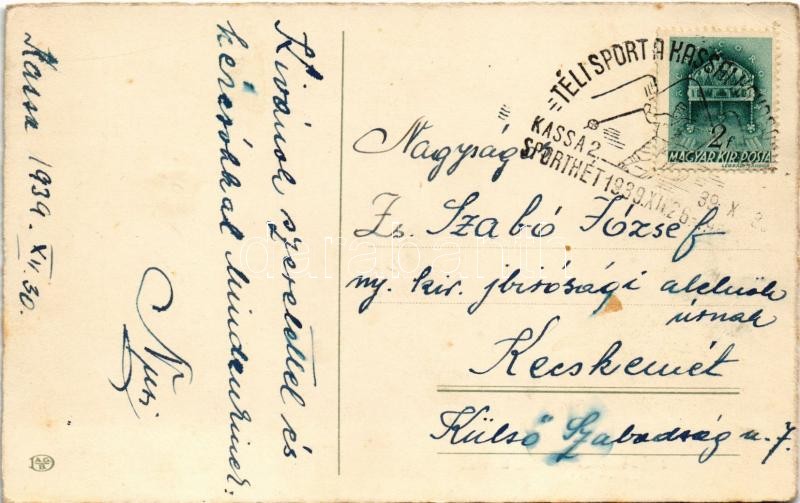 Kassa 1939. XII. 30.
Kívánok szeretettel és
kézcsókkal Mindenkinek:
TÉLI SPORT A KASSAI
KASSA 2
SPORTHÉT 1939.XII.26-
2 f
MAGYAR KIR. POSTA
Nagyságos
Szabó József
ny. kir. jbirósági alelnök
úrnak
Kecskemét
Külső Szabadság u. 7.
darabanth